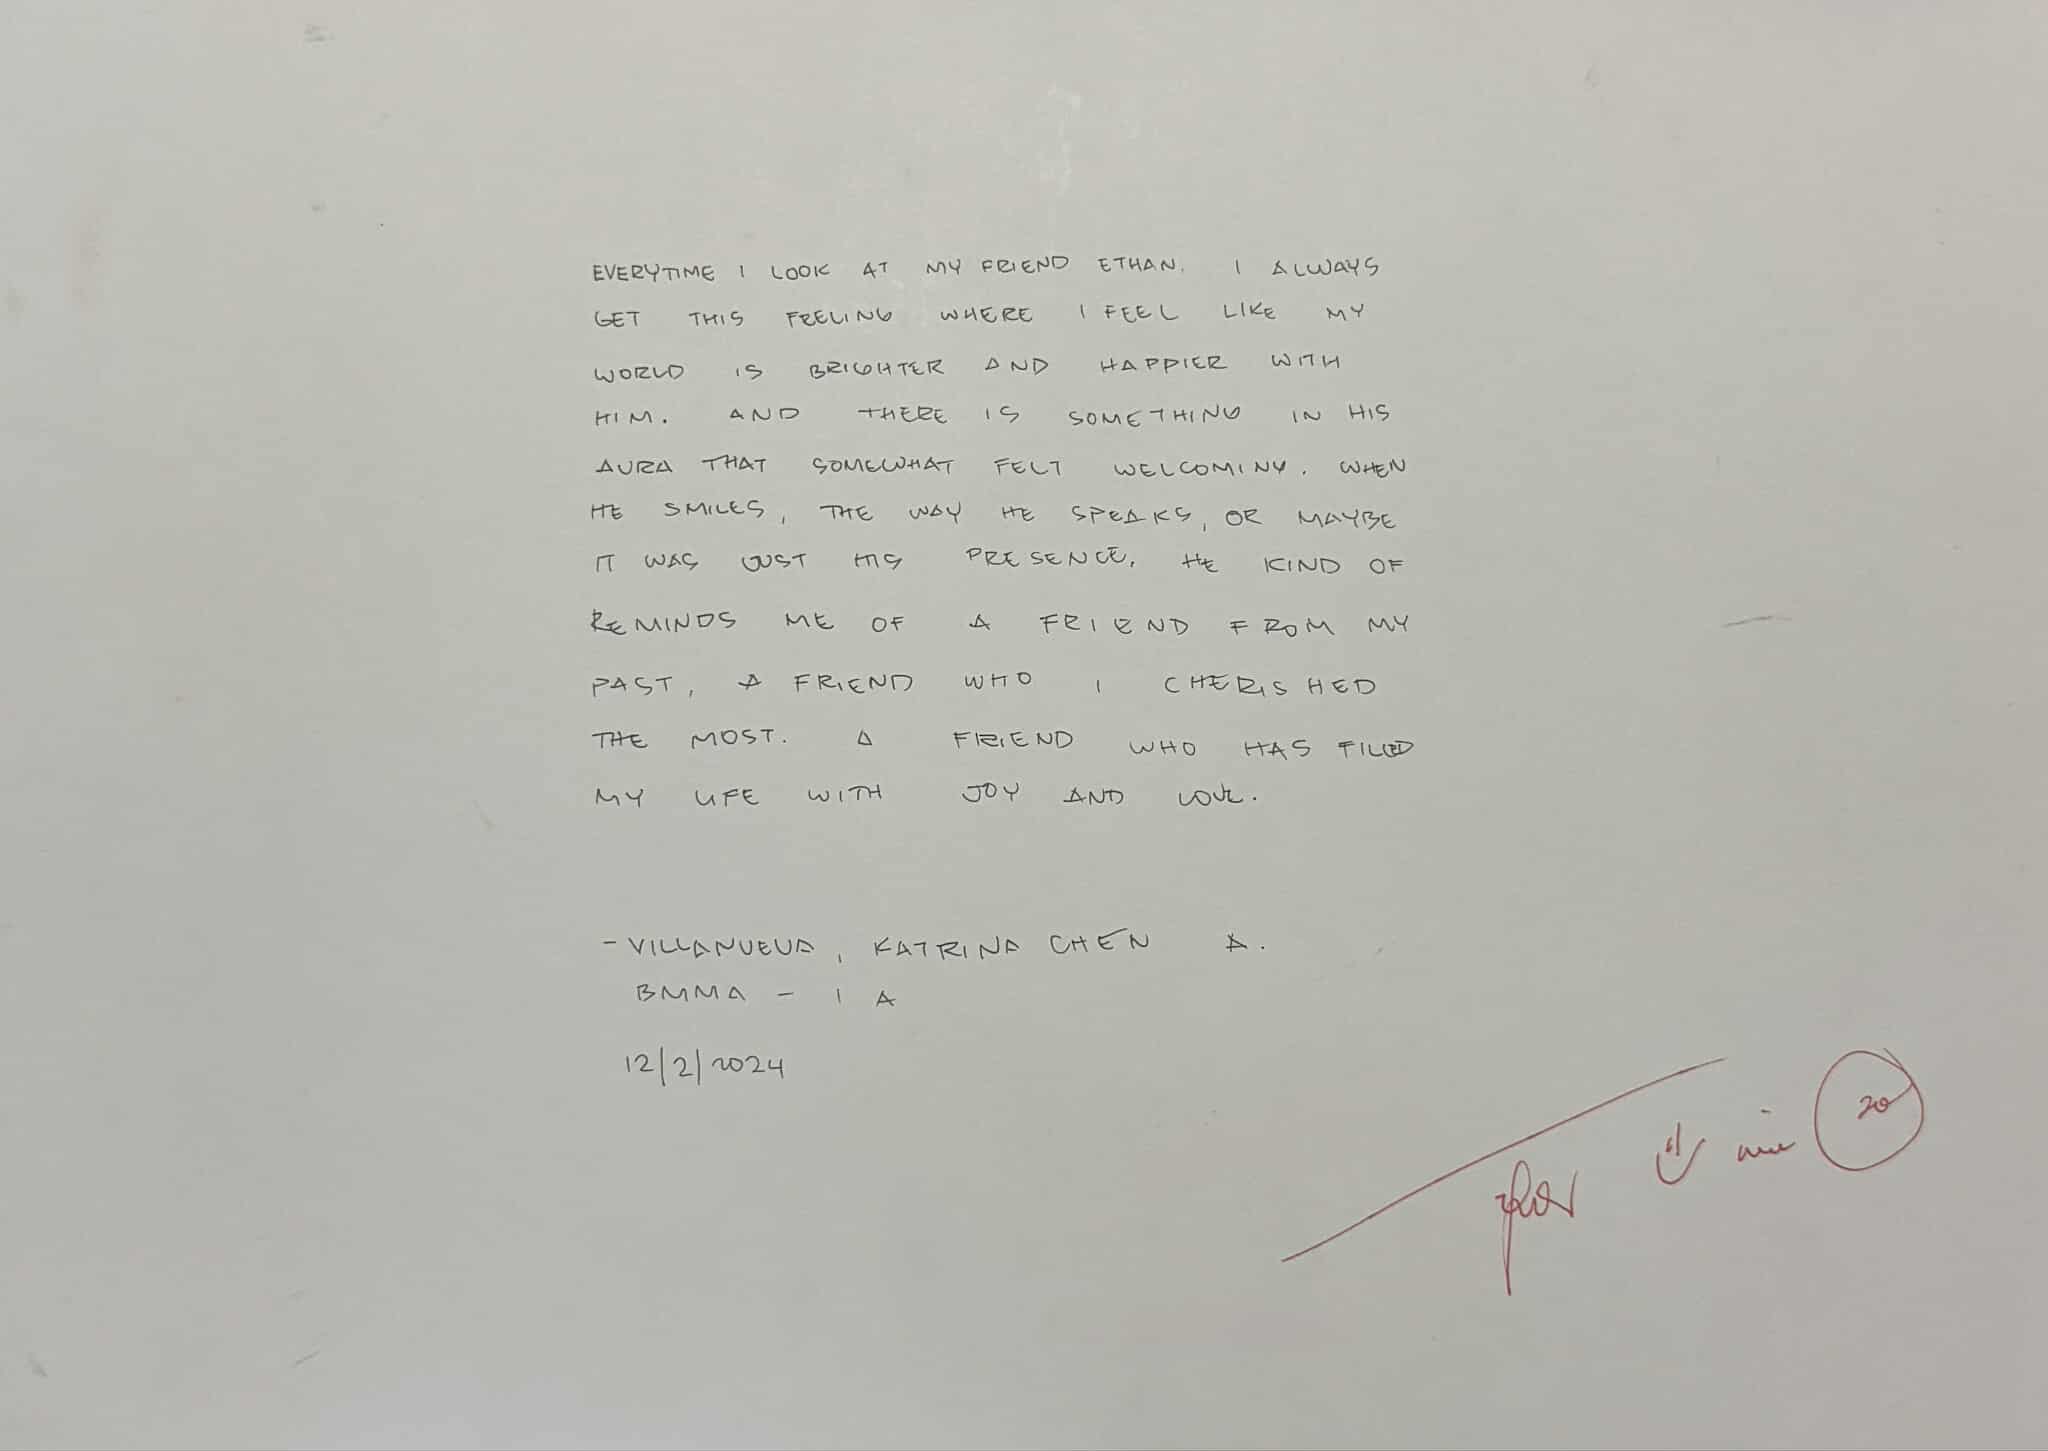 EVERYTIME I LOOK AT MY FRIEND ETHAN. I ALWAYS
GET THIS FEELING WHERE I FEEL LIKE MY
WORLD IS BRIGHTER AND HAPPIER WITH
HIM. AND THERE IS SOMETHING IN HIS
AURA THAT SOMEWHAT FELT WELCOMING. WHEN
HE SMILES, THE WAY HE SPEAKS, OR MAYBE
IT WAS JUST HIS PRESENCE. HE KIND OF
REMINDS ME OF A FRIEND FROM MY
PAST, A FRIEND WHO I CHERISHED
THE MOST. A FRIEND WHO HAS FILLED
MY LIFE WITH JOY AND LOVE.
- VILLANUEVA, KATRINA CHEN A.
BMMA - 1 A
12/2/2024
20